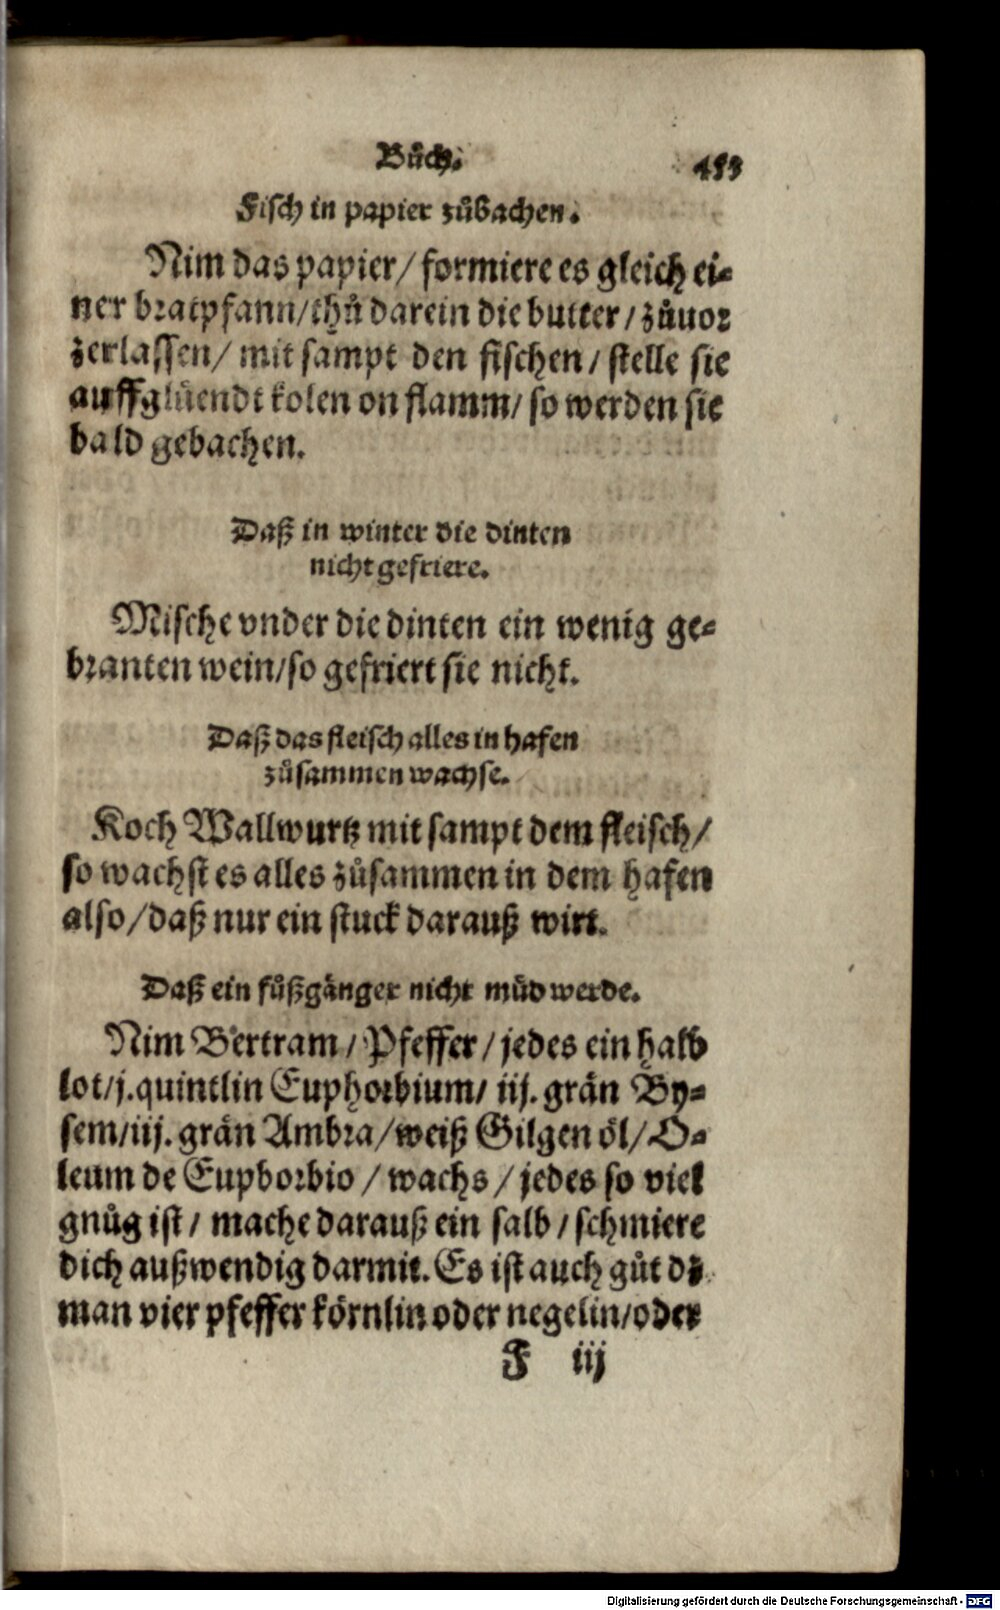 Bůch.
Fisch in papier zůbachen.
Nim das papier/ formiere es gleich ei⸗
ner bratpfann/ thů darein die butter/ zůuor
zerlassen/ mit sampt den fischen/ stelle sie
auff glüendt kolen on flamm/ so werden sie
bald gebachen.
Daß in winter die dinten
nicht gefriere.
Mische vnder die dinten ein wenig ge⸗
branten wein/ so gefriert sie nicht.
Daß das fleisch alles in hafen
zůsammen wachse.
Koch Wallwurtz mit sampt dem fleisch/
so wachst es alles zůsammen in dem hafen
also/ daß nur ein stuck darauß wirt.
Daß ein fůßgänger nicht müd werde.
Nim Bertram/ Pfeffer/ jedes ein halb
lot/ j. quintlin Euphorbium/ iij. grän By⸗
sem/ iij. grän Ambra/ weiß Gilgen öl/ O⸗
leum de Euphorbio/ wachs/ jedes so viel
gnůg ist/ mache darauß ein salb/ schmiere
dich außwendig darmit. Es ist auch gůt dz
man vier pfeffer körnlin oder negelin/ oder
F iij
Digitalisierung gefördert durch die Deutsche Forschungsgemeinschaft - DFG